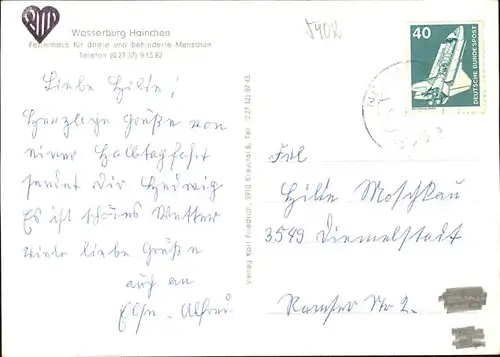 5902
Wasserburg Hainchen
Ferienhaus für ältere und behinderte Menschen
Telefon (0 27 37) 9 15 82
Liebe Hilde!
Herzlige Grüße von
einer Halbtagfahrt
sendet Dir Hedwig
Es ist schönes Wetter
Viele liebe Grüße
auch an
Else - Alfred.
Verlag Karl Friedrich, 5910 Kreuztal 6, Tel. (0 27 32) 8 17 43
40
DEUTSCHE BUNDESPOST
Frl
Hilde Moschkau
3549 Diemelstadt
Ramser Nr 2.